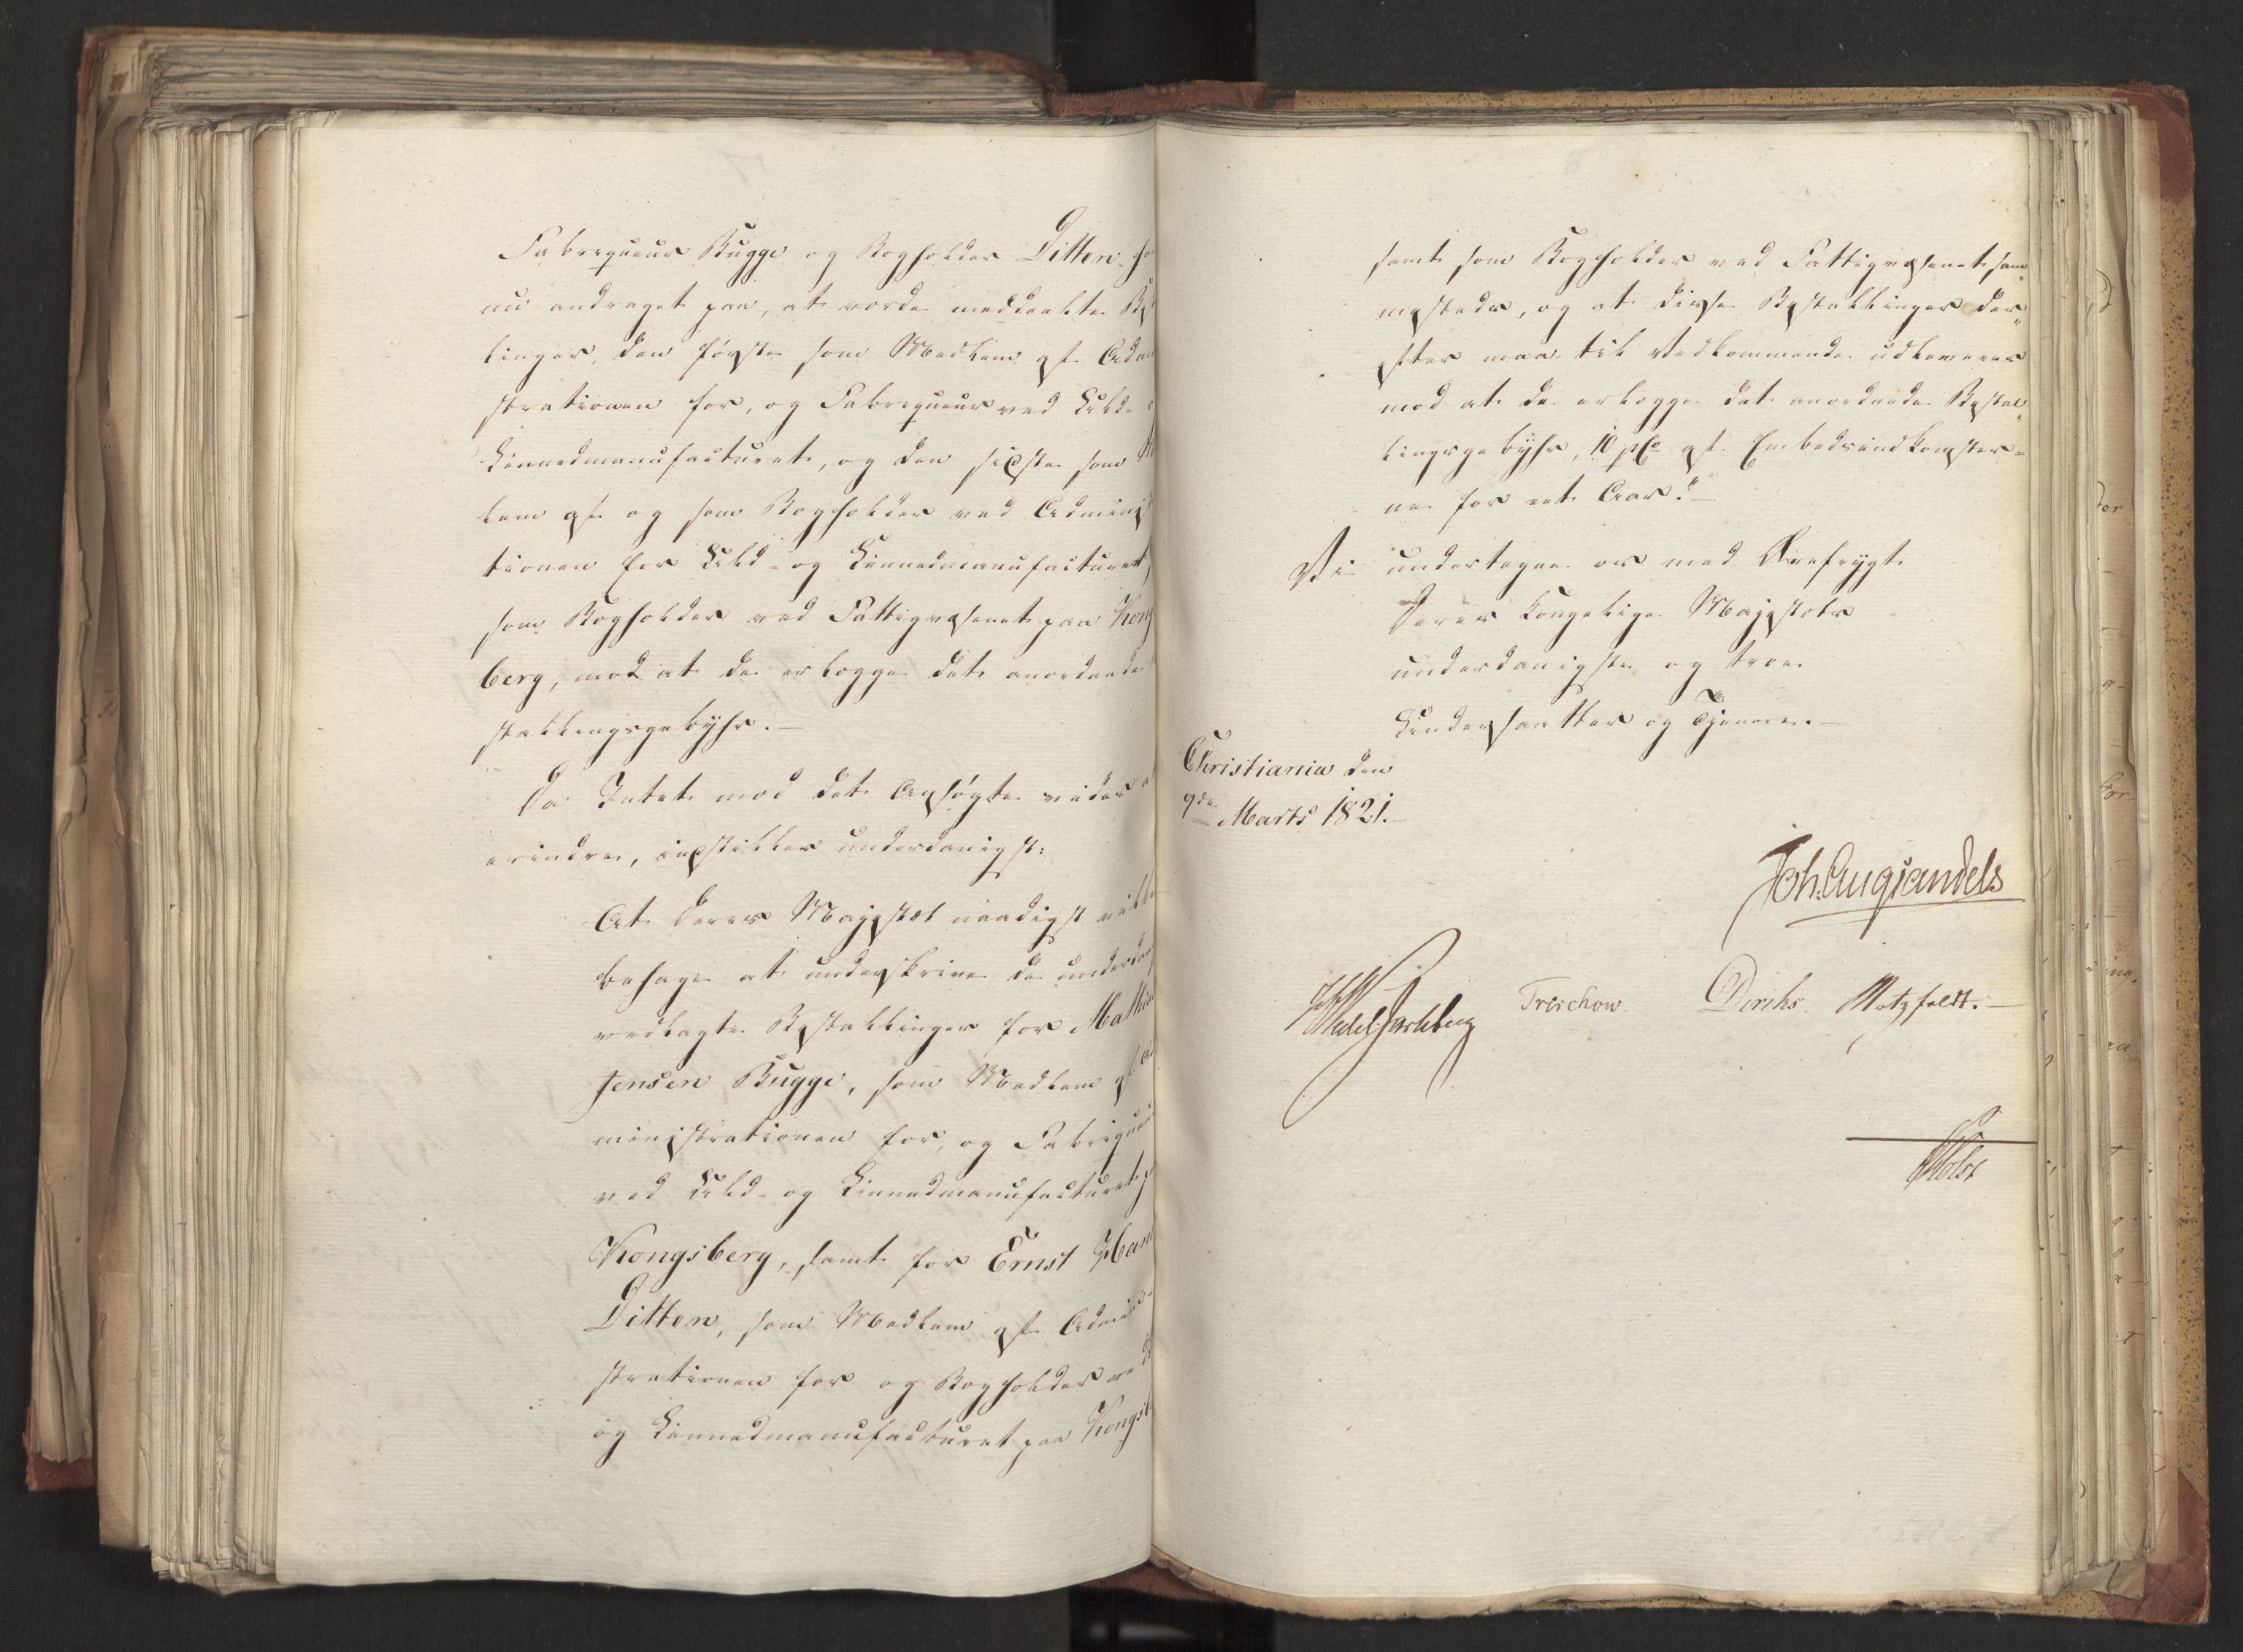 Fabriqueur Bugge og Bogholder Ditten ha
nu andraget paa, at vorde meddeelte Be
linger, den første som Medlem af Adm
strationen for, og Fabriqueur ved Uld-
Linnedmanufacturet, og den sidste som
lem af og som Bogholder ved Admini
tionen for Uld- og Linnedmanufacturet,
som Bogholder ved Fattigvæsenet paa Kong
berg, mod at de erlægge det anordnede
stallingsgebyhr.—
Da Intet mod det Ansøgte vides a
erindre, indstilles underdanigst:
At Deres Majestæt naadigst ville
behage at underskrive de underdan
vedlagte Bestallinger for Mathi
Jensen Bugge, som Medlem af
ministrationen for, og Fabriqueu
ved Uld- og Linnedmanufacturet p
Kongsberg, samt for Ernst Han
Ditten, som Medlem af Admini-
strationen for og Bogholder ved
og Linnedmanufacturet paa Kongsb
samt som Bogholder ved Fattigvæsenet sam„
mesteds, og at disse Bestallinger der„
efter maae til Vedkommende udleveres
mod at de erlægge det anordnede Bestal„
lingsgebyhr, 10 pCt af Embedsindkomster=
ne for eet Aar."—
Vi undertegne os med Ærefrygt
Deres Kongelige Majestæts
underdanigste og troe
Undersaatter og Tjenere.—
Christiania den
9de Marts 1821.—
Joh. Aug Sandels
Wedel Jarlsberg Treschow. Diriks Motzfeldt.—
Holst